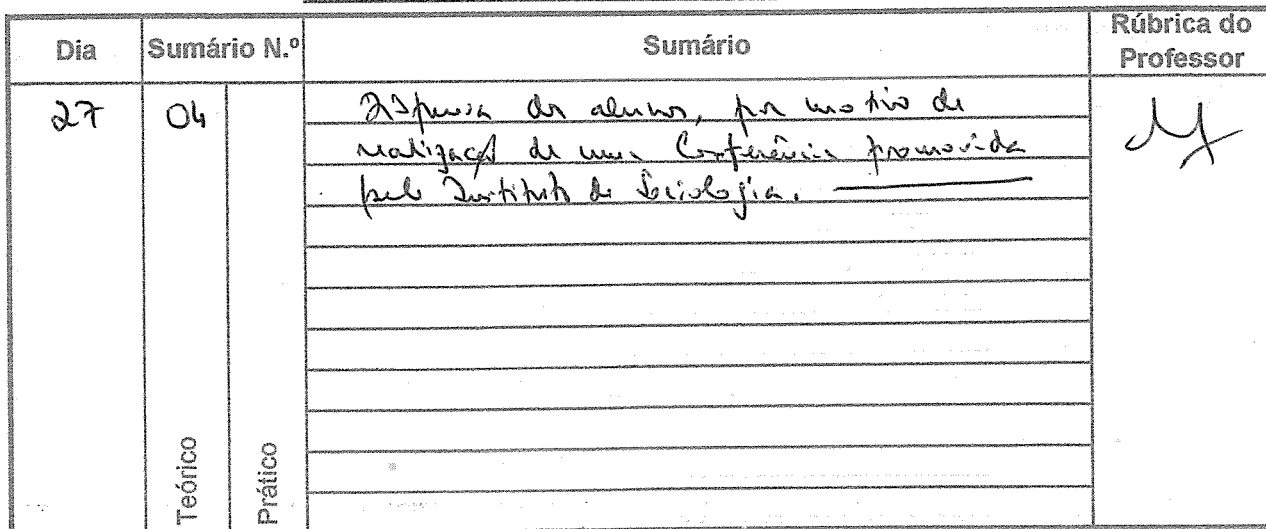 Dia Sumário N.º Sumário Rúbrica do Professor
27 04 Dispensa dos alunos, por motivo de
realização de uma Conferência promovida
pelo Instituto de Sociologia.
Teórico
Prático